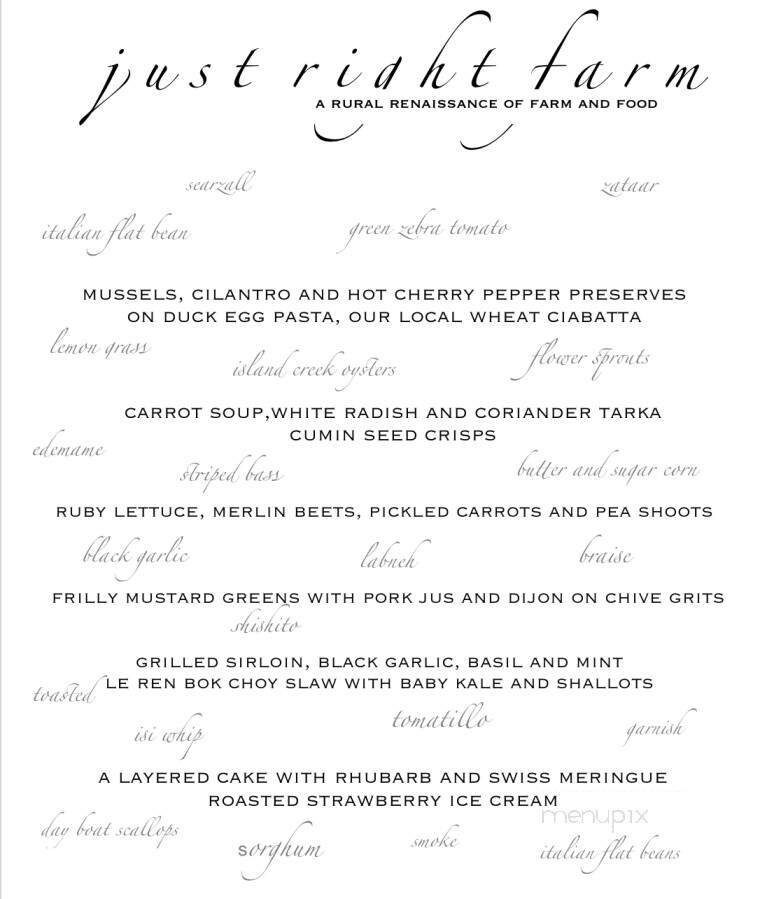 just right farm
A RURAL RENAISSANCE OF FARM AND FOOD
searzall
zataar
italian flat bean
green zebra tomato
MUSSELS, CILANTRO AND HOT CHERRY PEPPER PRESERVES
ON DUCK EGG PASTA, OUR LOCAL WHEAT CIABATTA
lemon grass
island creek oysters
flower sprouts
CARROT SOUP,WHITE RADISH AND CORIANDER TARKA
CUMIN SEED CRISPS
edemame
striped bass
butter and sugar corn
RUBY LETTUCE, MERLIN BEETS, PICKLED CARROTS AND PEA SHOOTS
black garlic
labneh
braise
FRILLY MUSTARD GREENS WITH PORK JUS AND DIJON ON CHIVE GRITS
shishito
GRILLED SIRLOIN, BLACK GARLIC, BASIL AND MINT
toasted
LE REN BOK CHOY SLAW WITH BABY KALE AND SHALLOTS
isi whip
tomatillo
garnish
A LAYERED CAKE WITH RHUBARB AND SWISS MERINGUE
ROASTED STRAWBERRY ICE CREAM
menupix
day boat scallops
sorghum
smoke
italian flat beans